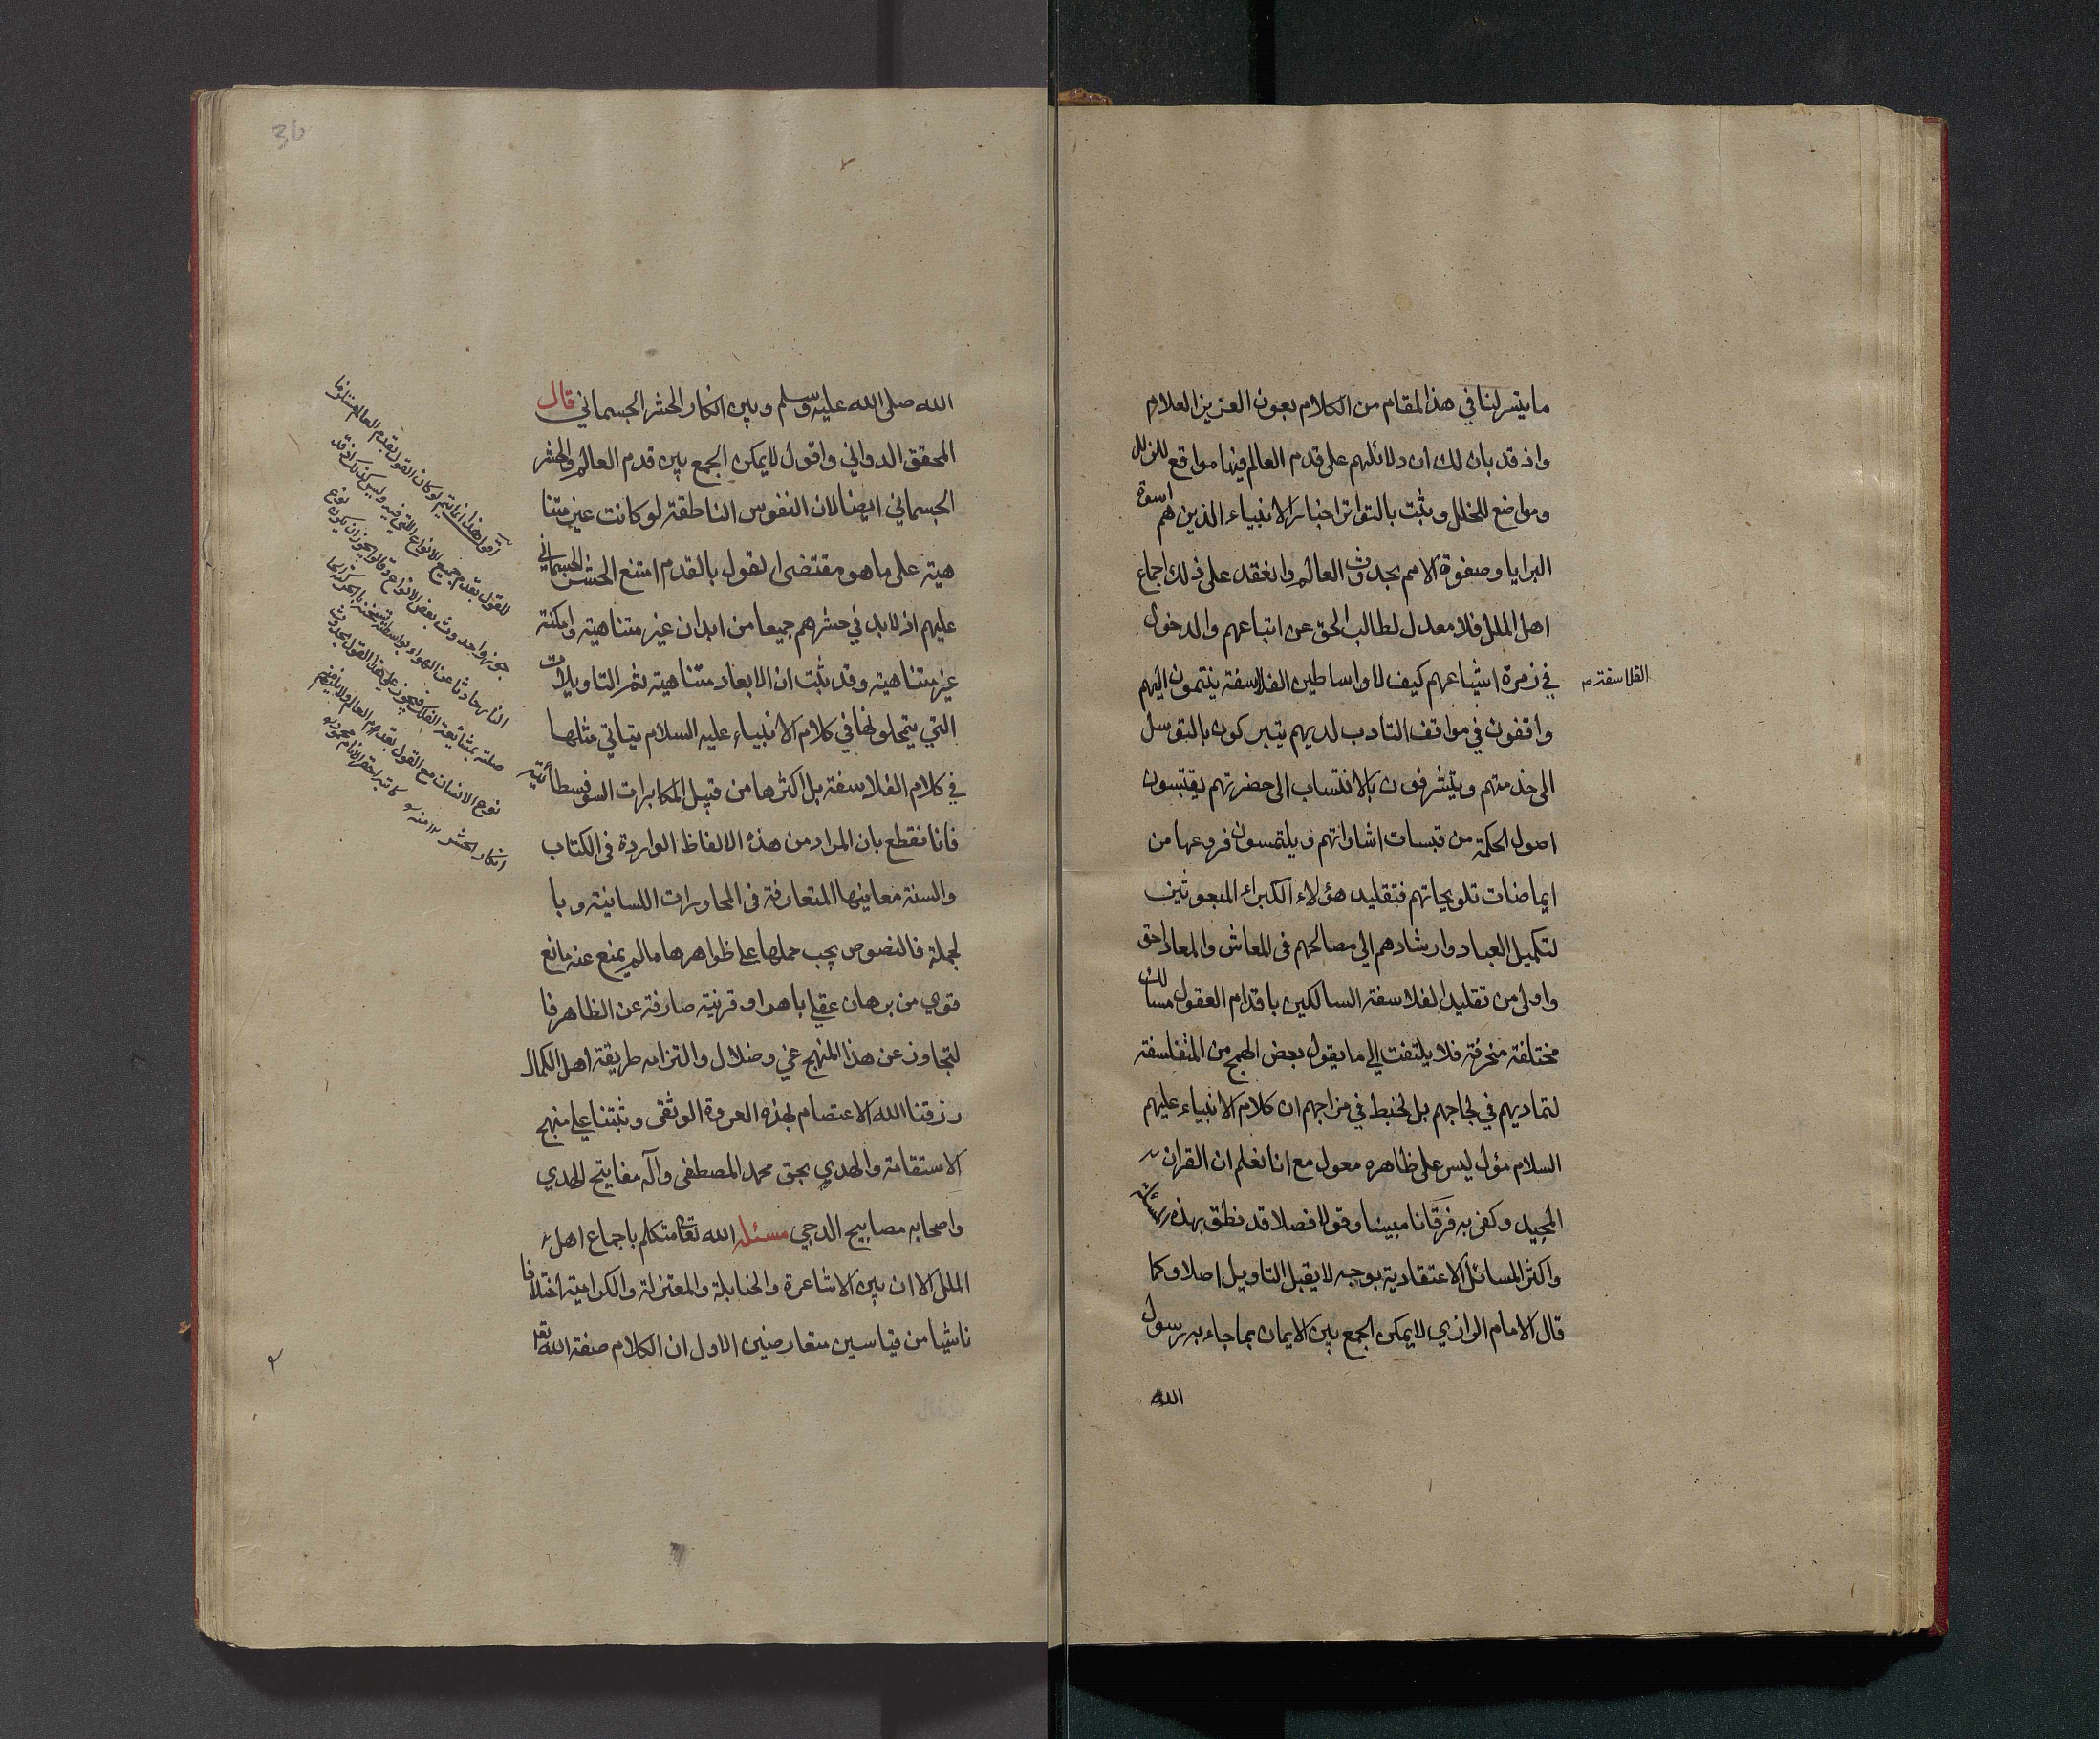 ما يتسر لنا في هذا المقام من الكلام بعون العزيز العلام
واذ قد بان لك ان دلائلهم على قدم العالم فيها مواقع للزلل
ومواضع للخلل وثبت بالتواتر اخبار الانبياء الذين هم اسوة
البرايا وصفوة الامم بحدوث العالم وانعقد على ذلك اجماع
اهل الملل فلا معدل لطالب الحق عن اتباعهم والدخول
في زمرة اشياعهم كيف لا واساطين الفلاسفة ينتمون اليهم
الفلاسفة م
واقفون في مواقف التادب لديهم يتبركون بالتوسل
الى خدمتهم ويتشرفون بالانتساب الى حضرتهم يقتبسون
اصول الحكمة من قبسات اشاراتهم ويلتمسون فروعها من
ايماضات تلويحاتهم فتقليد هؤلاء الكبراء المبعوثين
لتكميل العباد وارشادهم الى مصالحهم فى المعاش والمعاد احق
واولى من تقليد الفلاسفة السالكين باقدام العقول مسالك
مختلفة منحرفة فلا يلتفت الى ما يقول بعض الهمج من المتفلسفة
لتماديهم في لجاجهم بل لخبط في مزاجهم ان كلام الانبياء عليهم
السلام مؤل ليس على ظاهره معول مع انا نعلم ان القران
المجيد وكفى به فرقانا مبينا وقولا فصلا قد نطق بهذه
واكثر المسائل الاعتقادية بوجه لا يقبل التاويل اصلا وكما
قال الامام الرازي لا يمكن الجمع بين الايمان بما جاء به رسول
الله
الله صلى الله عليه وسلم وبين انكار الحشر الجسماني قال
المحقق الدواني واقول لا يمكن الجمع بين قدم العالم والحشر
الجسماني ايضا لان النفوس الناطقة لو كانت غير متنا
هية على ما هو مقتضى القول بالقدم امتنع الحشر الجسماني
عليهم اذ لا بد في حشرهم جميعا من ابدان غير متناهية وامكنة
غير متناهية وقد ثبت ان الابعاد متناهية ثم التاويلات
التي يتمحلونها في كلام الانبياء عليه السلام يتاتي مثلها
في كلام الفلاسفة بل اكثرها من قبيل المكابرات السوفسطائية
فانا نقطع بان المراد من هذه الالفاظ الواردة فى الكتاب
والسنة معانيها المتعارفة فى المحاورات اللسانية وبا
لجملة فالنصوص يجب حملها على ظواهرها ما لم يمنع عنه مانع
قوي من برهان عقلي باهر او قرينة صارفة عن الظاهر فا
لتجاوز عن هذا المنهج غي وضلال والتزامه طريقة اهل الكمال
رزقنا الله الاعتصام بهذه العروة الوثقى وثبتنا على منهج
الاستقامة والهدي بحق محمد المصطفى وآله مفاتيح الهدي
واصحابه مصابيح الدجي مسئلة الله تعا متكلم باجماع اهل
الملل الا ان بين الاشاعرة والحنابلة والمعتزلة والكرامية اختلافا
ناشيا من قياسين متعارضين الاول ان الكلام صفة الله تعا
اقول هذا انما يتم لو كان القول بقدم العالم مستلزما
للقول بقدم جميع الانواع التي فيه وليس كذلك اذ قد
جوزوا حدوث بعض الانواع وقالوا يجوز ان يكون نوع
النار حادثا عن الهواء بواسطة تسخنه بالحركة
بمشايعة الفلك فيجوز على هذا القول بحدوث
نوع الانسان مع القول بقدم العالم ولا يلزمهم
انكار الحشر ١٢ منه
36